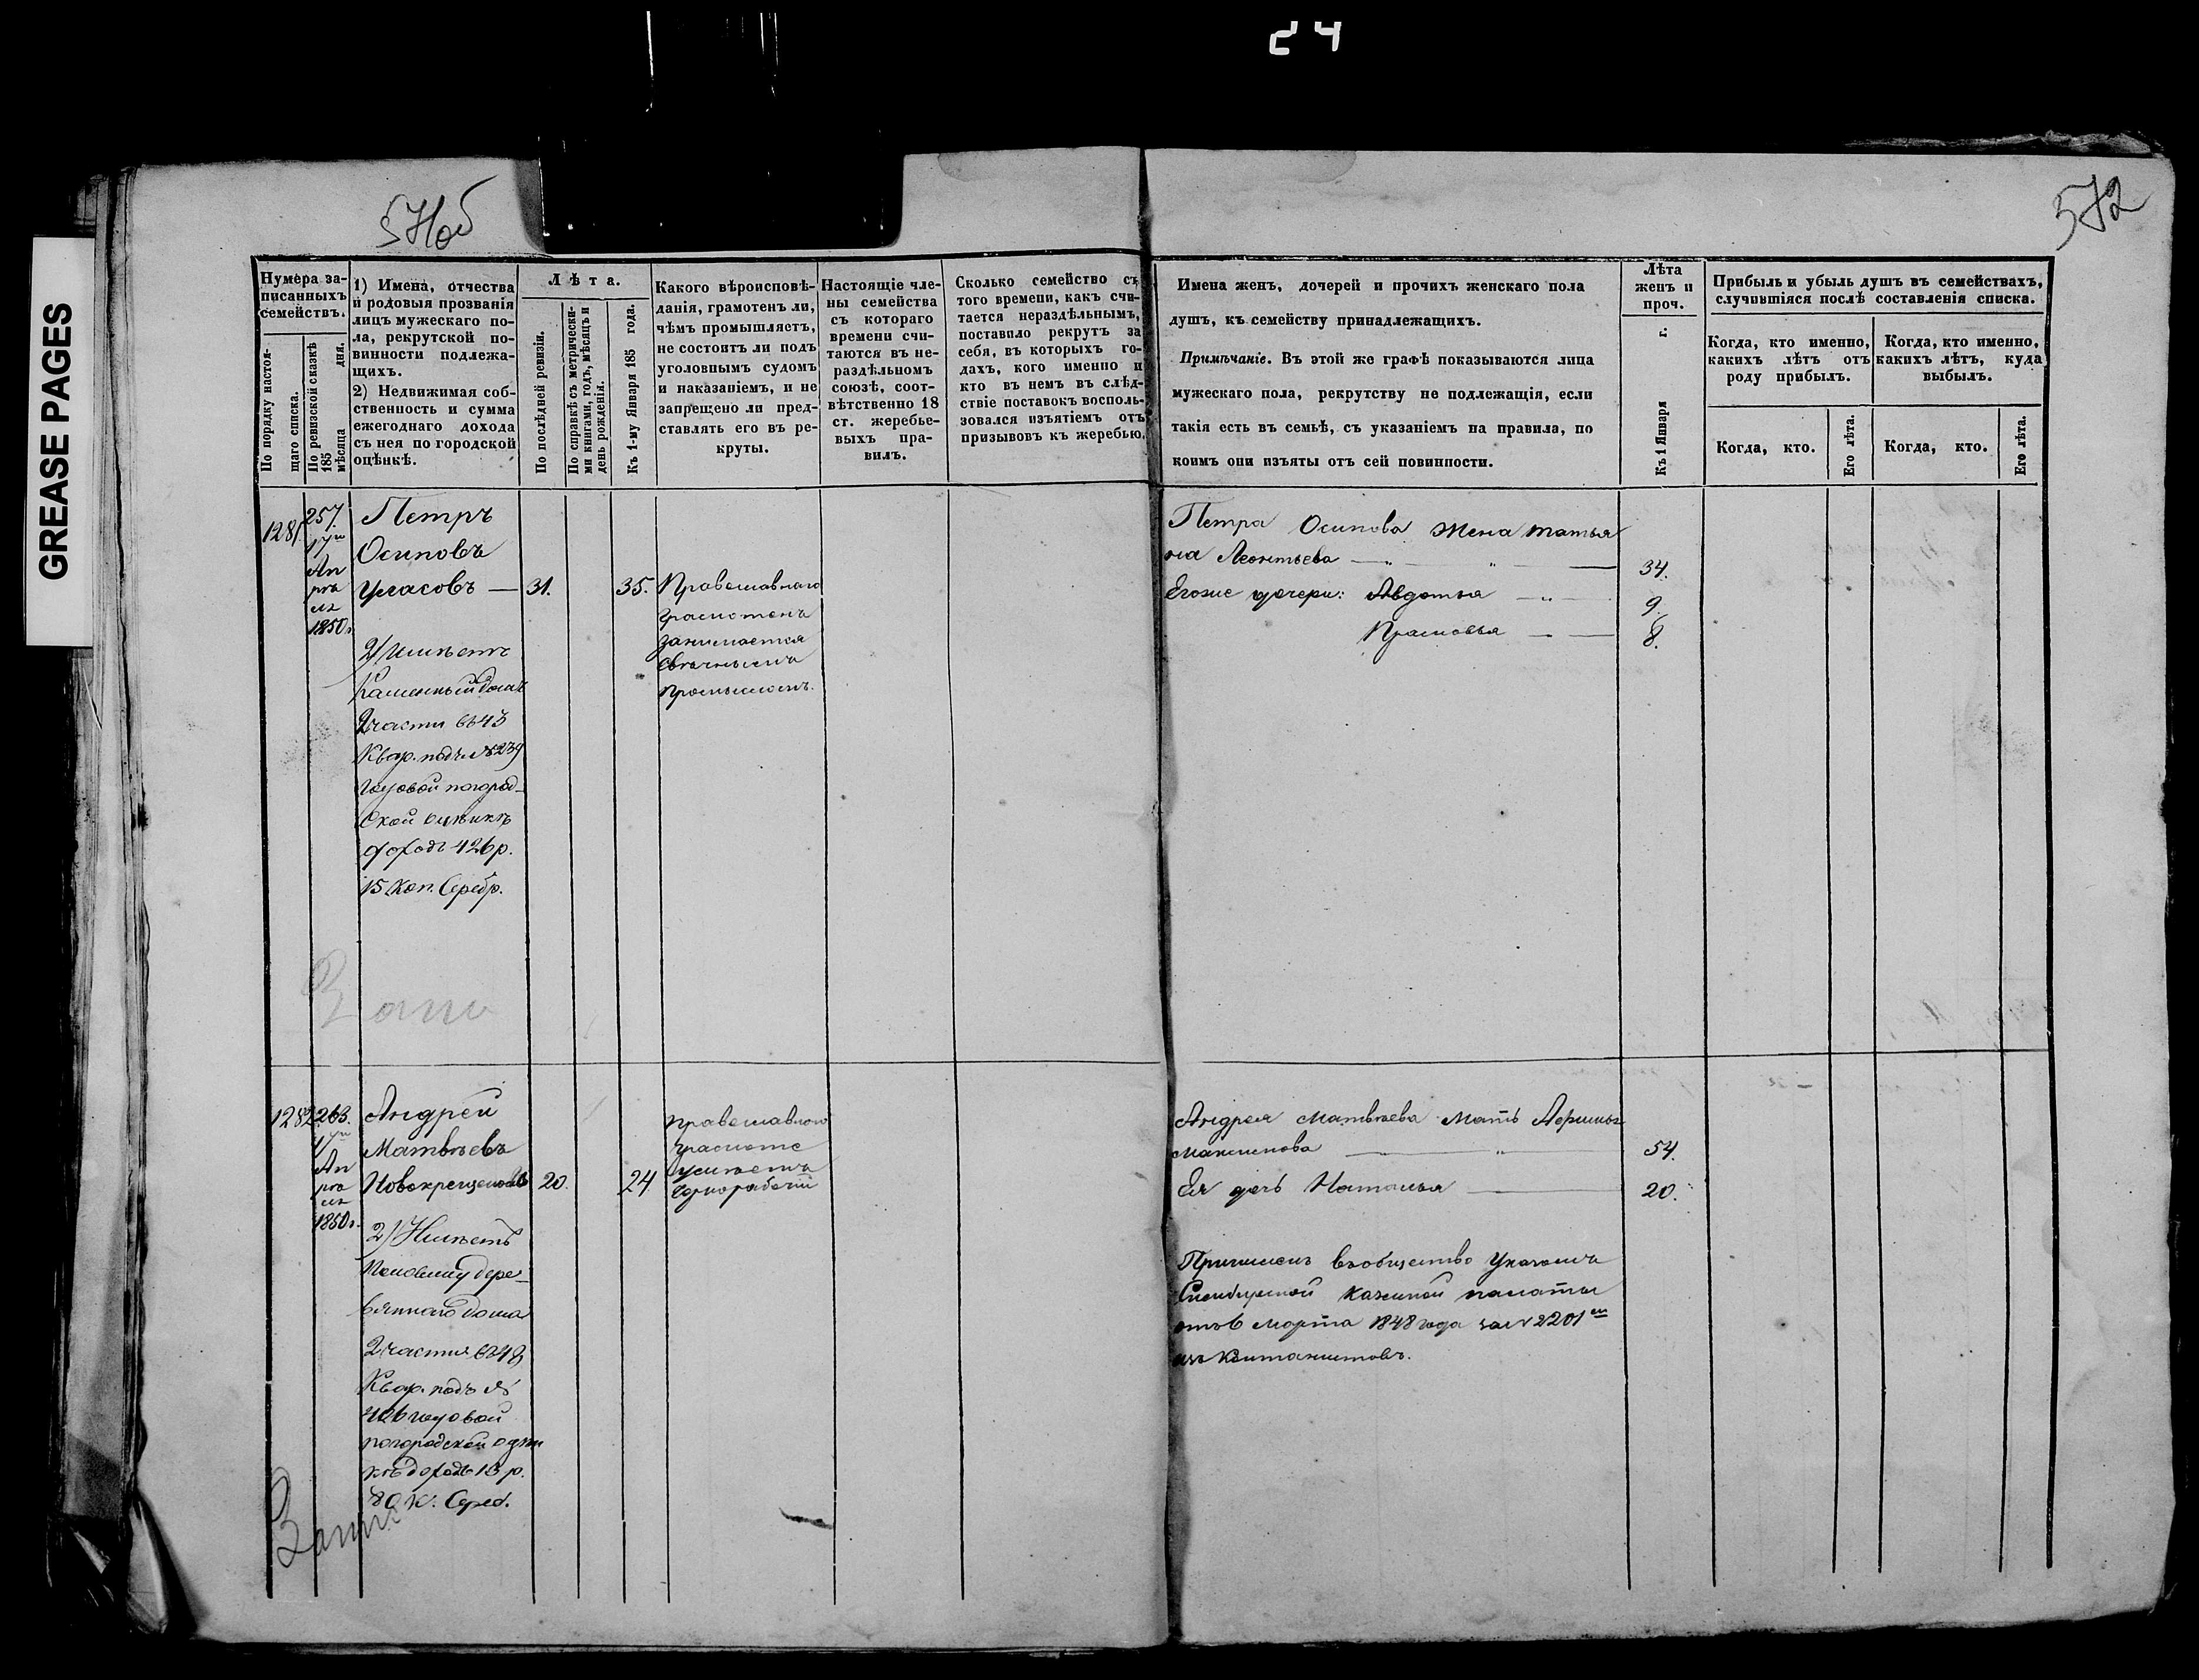 24
GREASE PAGES
571об
572
Нумера за-
писанныхъ
семействъ.
По порядку настоя-
щаго списка.
По ревизской сказкѣ
185
мѣсяца дня.
1) Имена, отчества
и родовыя прозванія
лицъ мужескаго по-
ла, рекрутской по-
винности подлежа-
щихъ.
2) Недвижимая соб-
ственность и сумма
ежегоднаго дохода
съ нея по городской
оцѣнкѣ.
Лѣта.
По послѣдней ревизіи.
По справкѣ съ метрически-
ми книгами, годъ, мѣсяцъ и
день рожденія.
Къ 1-му Января 185 года.
Какого вѣроисповѣ-
данія, грамотенъ ли,
чѣмъ промышляетъ,
не состоитъ ли подъ
уголовнымъ судомъ
и наказаніемъ, и не
запрещено ли пред-
ставлять его въ ре-
круты.
Настоящіе чле-
ны семейства
съ котораго
времени счи-
таются въ не-
раздѣльномъ
союзѣ, соот-
вѣтственно 18
ст. жеребье-
выхъ пра-
вилъ.
Сколько семейство съ
того времени, какъ счи-
тается нераздѣльнымъ,
поставило рекрутъ за
себя, въ которыхъ го-
дахъ, кого именно и
кто въ немъ въ слѣд-
ствіе поставокъ восполь-
зовался изъятіемъ отъ
призывовъ къ жеребью.
Имена женъ, дочерей и прочихъ женскаго пола
душъ, къ семейству принадлежащихъ.
Примѣчаніе. Въ этой же графѣ показываются лица
мужескаго пола, рекрутству не подлежащія, если
такія есть въ семьѣ, съ указаніемъ на правила, по
коимъ они изъяты отъ сей повинности.
Лѣта
женъ и
проч.
Къ 1 Января г.
Прибыль и убыль душъ въ семействахъ,
случившіяся послѣ составленія списка.
Когда, кто именно,
какихъ лѣтъ отъ
роду прибылъ.
Когда, кто именно,
какихъ лѣтъ, куда
выбылъ.
Когда, кто.
Его лѣта.
Когда, кто.
Его лѣта.
1281.
257.
17го
Ап
рѣ
ля
1850г
Петръ
Осиповъ
Угасовъ — 31. 35.
2) Имѣетъ
Каменный домъ
2 части въ 43
Квар. подъ № 239
годовой погород-
ской оцѣнкѣ
доходъ 426 р.
15 Коп. Серебр.
Православнаго
грамотенъ
занимается
свѣчнымъ
промысломъ.
Петра Осипова Жена Татья
на Леонтьева — „ — „ — 34.
Егоже дочери: Авдотья — „ — 9.
Прасковья — — 8.
1282
263.
17го
Ап
рѣ
ля
1850г.
Андрей
Матвѣевъ
Новокрещеновъ 20. 24
2) Имѣетъ
Половину дере-
вяннаго дома
2 части въ 48
Квар. подъ №
годовой
погородской оцѣн
кѣ доходъ 13 р.
80 К. Сереб.
Православнаго
грамоте
умѣетъ
чернорабочій
Андрея Матвѣева Мать Афимья
Максимова — „ — 54.
Ея дочь Наталья — 20.
Причисленъ въ общество Указомъ
Симбирской Казенной палаты
отъ 6 Марта 1848 года за № 2201м
изъ Контанистовъ.